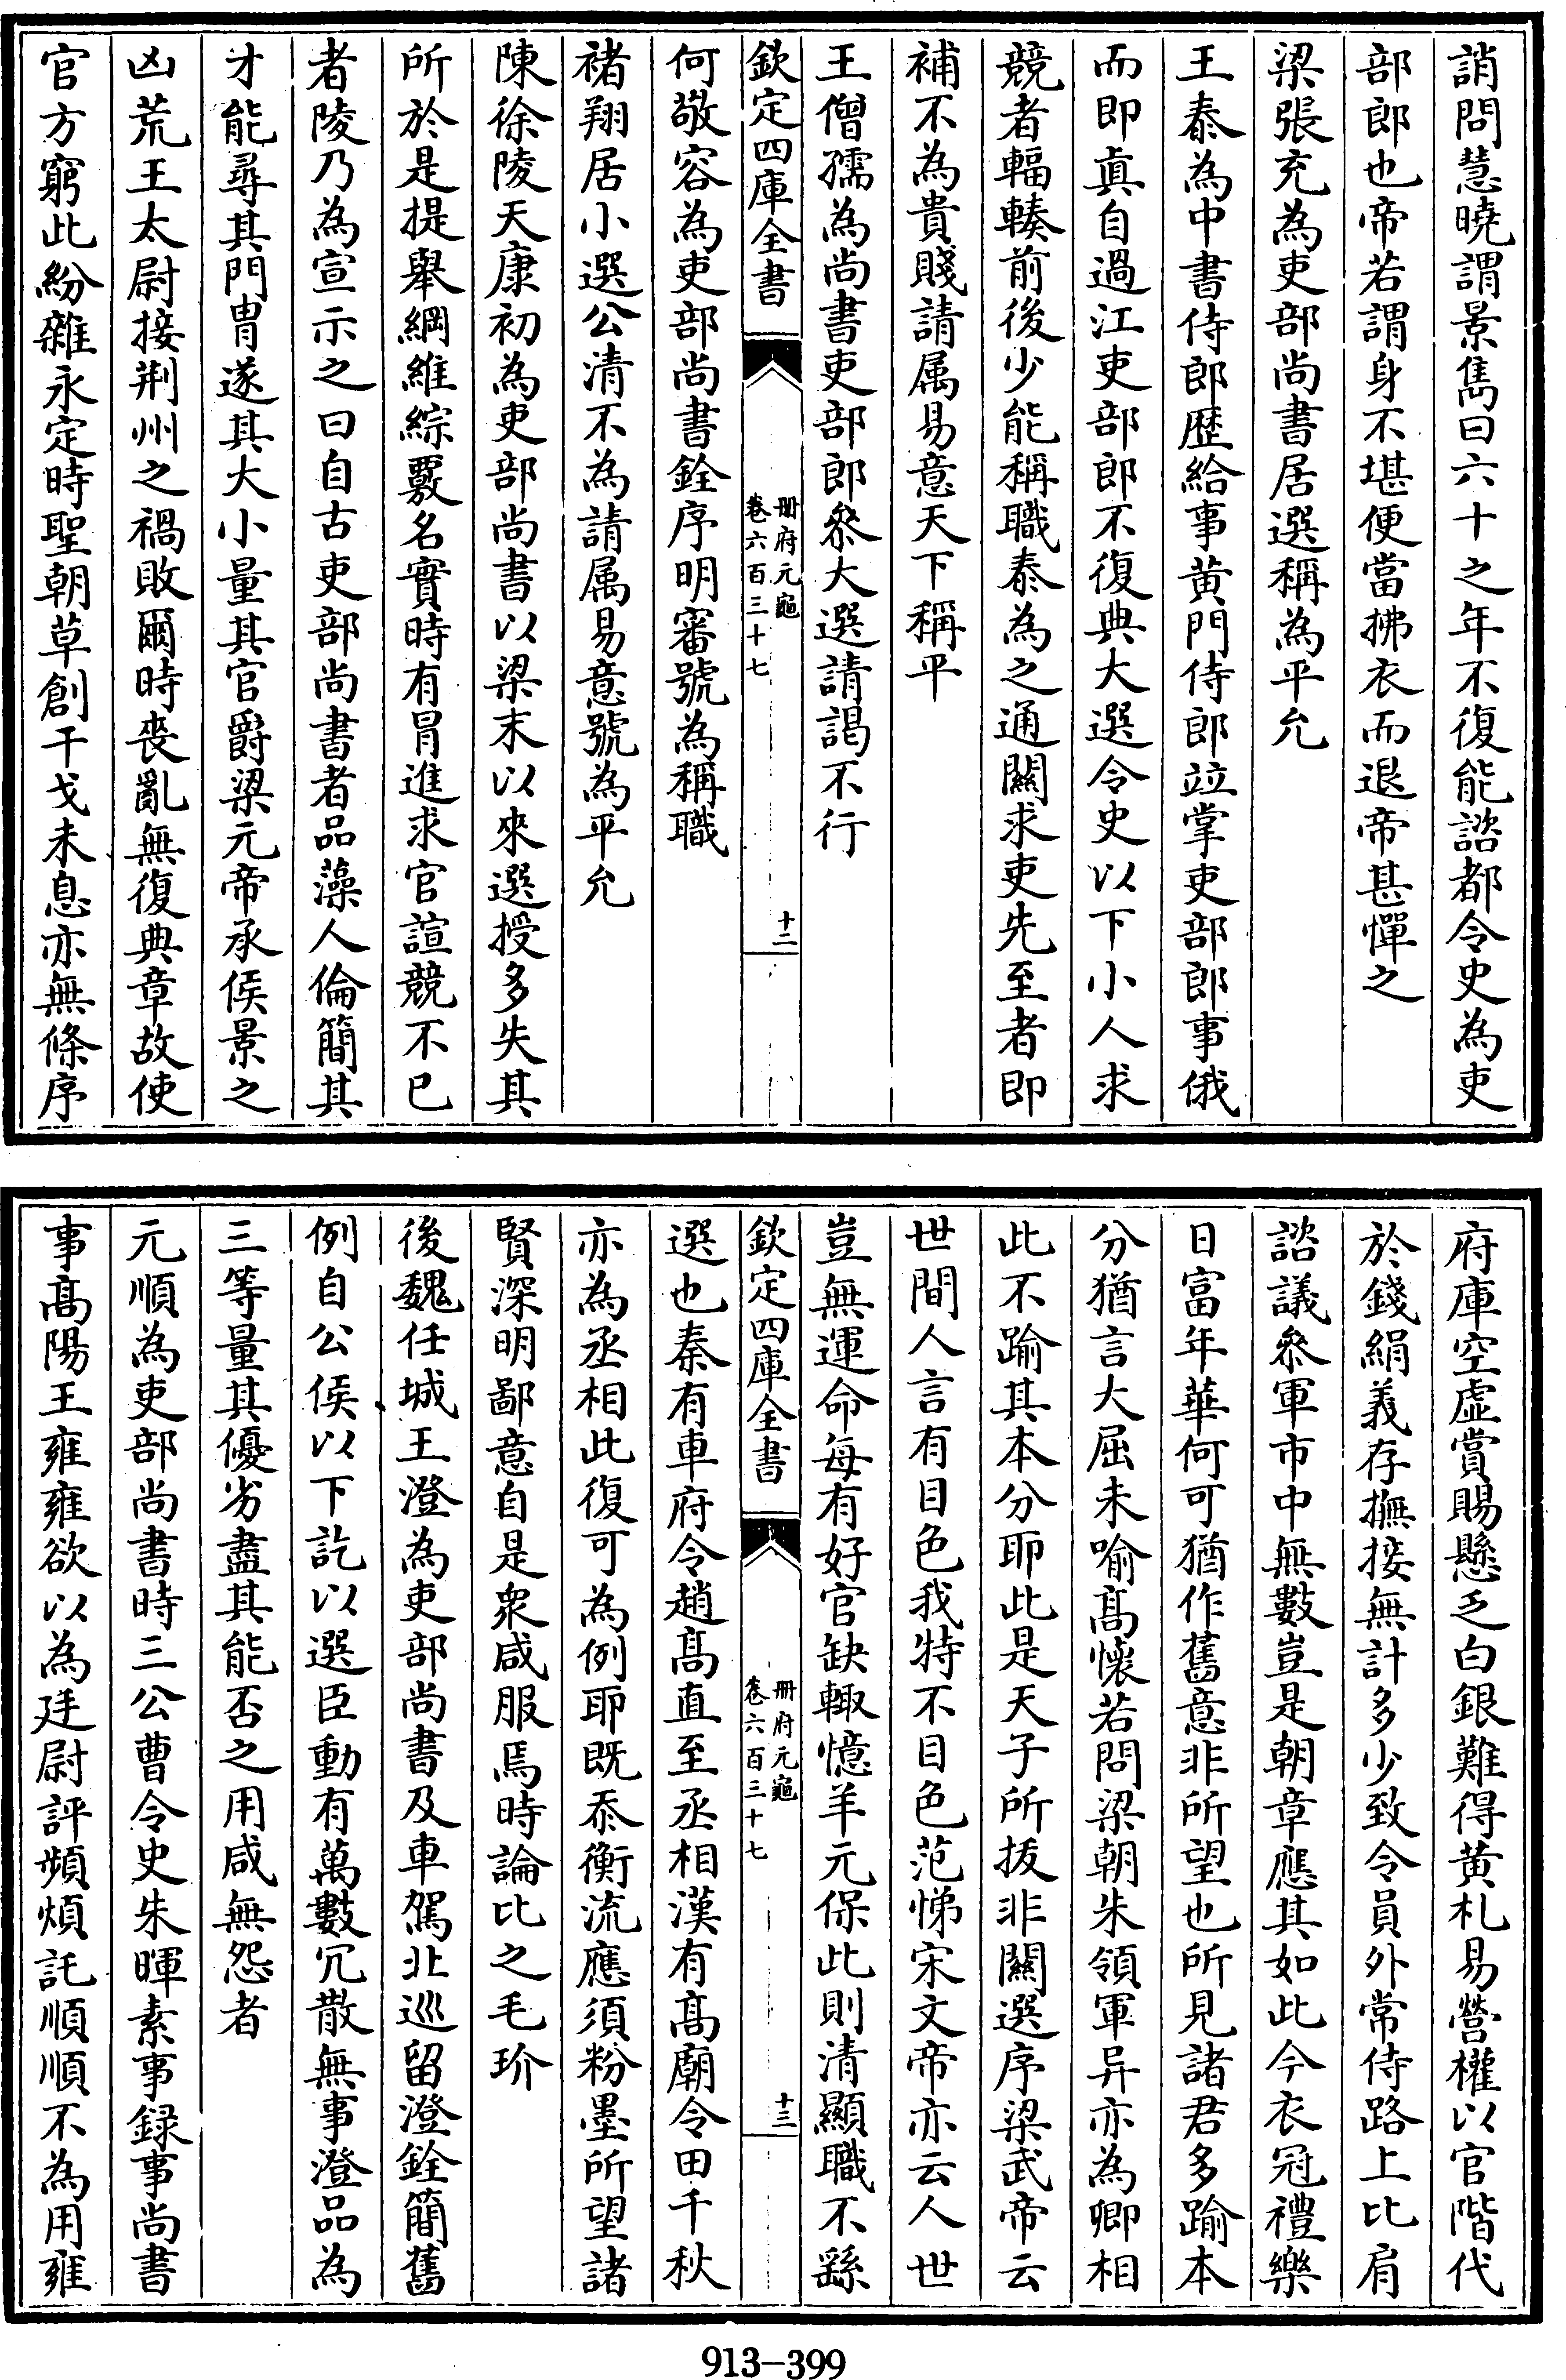 誚問慧曉謂景雋曰六十之年不復能諮都令史為吏
部郎也帝若謂身不堪便當拂衣而退帝甚憚之
梁張充為吏部尚書居選稱為平允
王泰為中書侍郎歷給事黃門侍郎竝掌吏部郎事俄
而即真自過江吏部郎不復典大選令史以下小人求
競者輻輳前後少能稱職泰為之通關求吏先至者即
補不為貴賤請属易意天下稱平
王僧孺為尚書吏部郎叅大選請謁不行
欽定四庫全書
冊府元龜
卷六百三十七
十二
何敬容為吏部尚書銓序明審號為稱職
褚翔居小選公清不為請属易意號為平允
陳徐陵天康初為吏部尚書以梁末以來選授多失其
所於是提舉綱維綜覈名實時有冐進求官諠競不已
者陵乃為宣示之曰自古吏部尚書者品藻人倫簡其
才能尋其門胄遂其大小量其官爵梁元帝承侯景之
凶荒王太尉接荆州之禍敗爾時喪亂無復典章故使
官方窮此紛雜永定時聖朝草創干戈未息亦無條序
府庫空虛賞賜懸乏白銀難得黃札易營權以官階代
於錢絹義存撫接無計多少致令員外常侍路上比肩
諮議叅軍市中無數豈是朝章應其如此今衣冠禮樂
日富年華何可猶作舊意非所望也所見諸君多踰本
分猶言大屈未喻髙懷若問梁朝朱領軍异亦為卿相
此不踰其本分耶此是天子所拔非關選序梁武帝云
世間人言有目色我特不目色范悌宋文帝亦云人世
豈無運命每有好官缺輙憶羊元保此則清顯職不繇
欽定四庫全書
冊府元龜
卷六百三十七
十三
選也秦有車府令趙髙直至丞相漢有髙廟令田千秋
亦為丞相此復可為例耶既忝衡流應須粉墨所望諸
賢深明鄙意自是衆咸服焉時論比之毛玠
後魏任城王澄為吏部尚書及車駕北巡留澄銓簡舊
例自公侯以下訖以選臣動有萬數冗散無事澄品為
三等量其優劣盡其能否之用咸無怨者
元順為吏部尚書時三公曹令史朱暉素事録事尚書
事髙陽王雍雍欲以為廷尉評頻煩託順順不為用雍
913-399